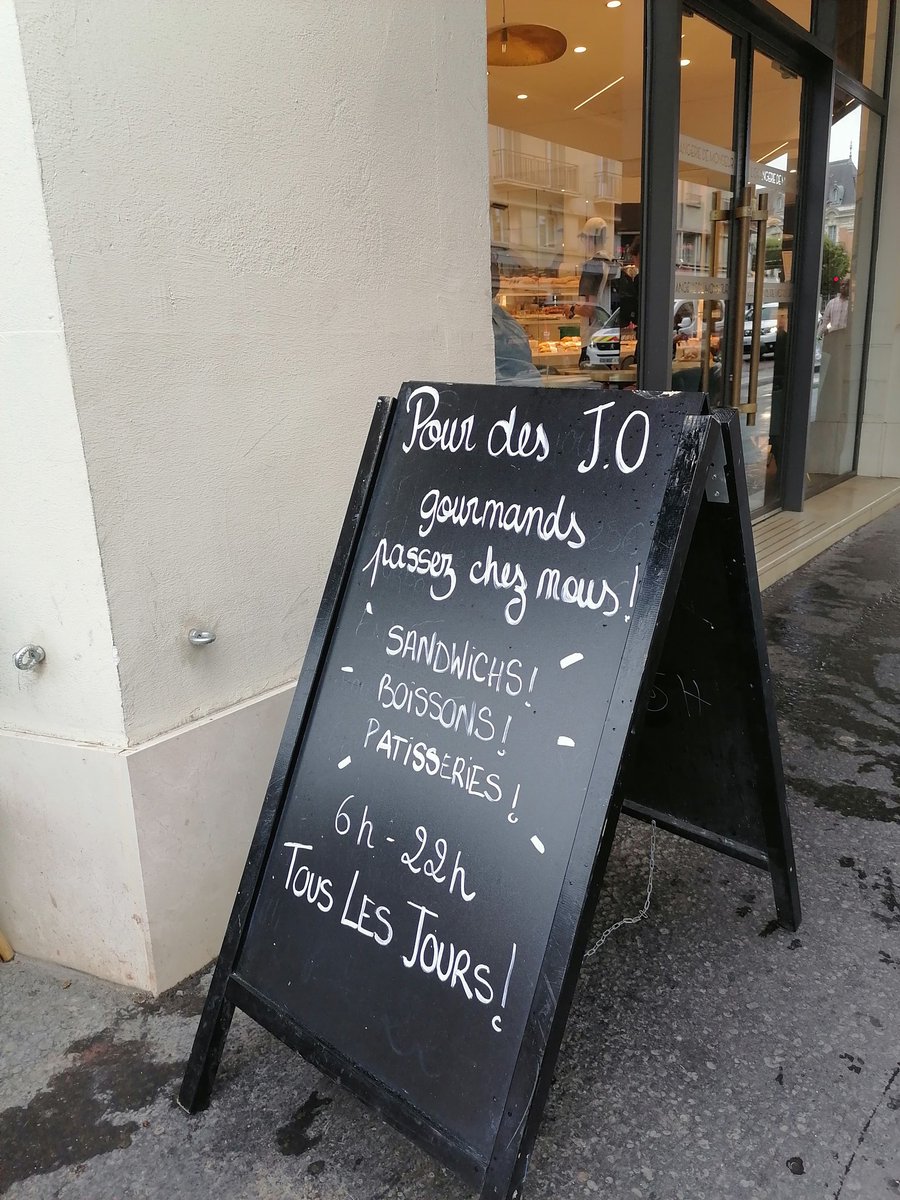 Pour des J.O
gourmands
passez chez nous!
SANDWICHS!
BOISSONS!
PATISSERIES!
6h-22h
TOUS LES JOURS!